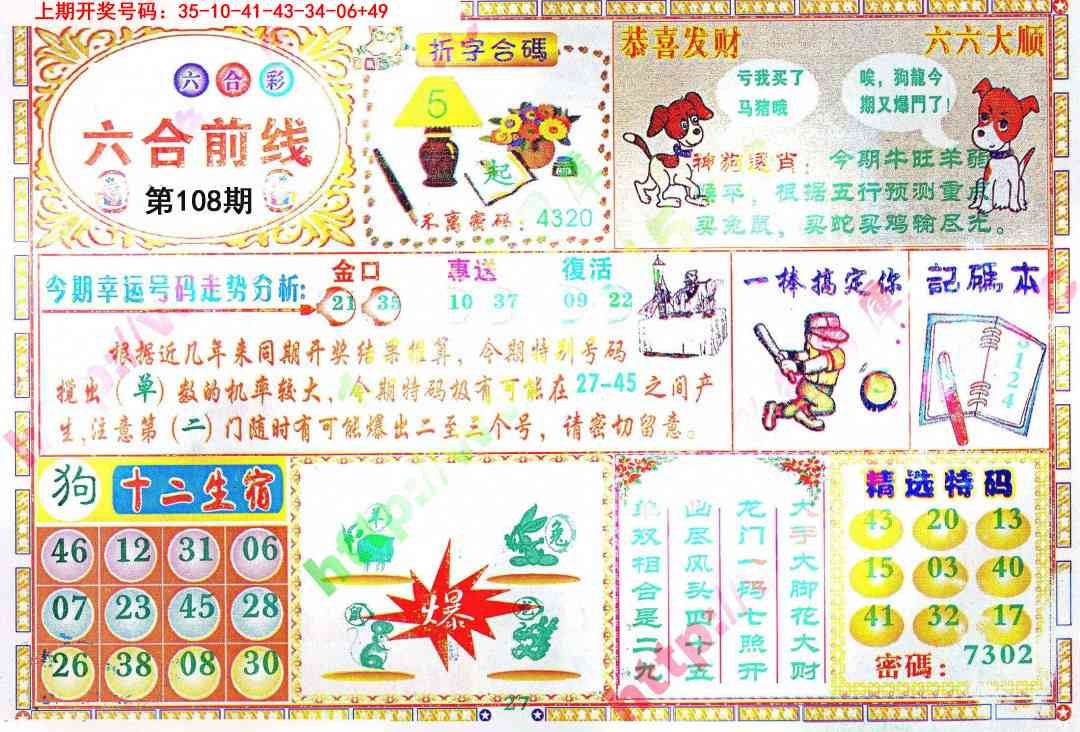 上期开奖号码：35-10-41-43-34-06+49
六合彩
六合前线
第108期
折字合碼
5
起
不离密码：4320
恭喜发财
六六大顺
亏我买了
马猪哦
唉，狗龍今
期又爆門了！
神狗選肖：今期牛旺羊弱
平，根据五行预测重
买兔鼠，买蛇买鸡输尽光。
今期幸运号码走势分析：
金口
21 35
惠送
10 37
復活
09 22
根据近几年来同期开奖结果推算，今期特别号码
搅出（单）数的机率较大，今期特码极有可能在27-45之间产
生，注意第（二）门随时有可能爆出二至三个号，请密切留意。
一棒搞定你
5
記碼本
5124
狗
十二生宿
46 12 31 06
07 23 45 28
26 38 08 30
羊
兔
鼠
爆
大手大脚花大财
龙门一码七照开
幽尽风头四十五
单双相合是二九
精选特码
43 20 13
15 03 40
41 32 17
密碼：7302
27